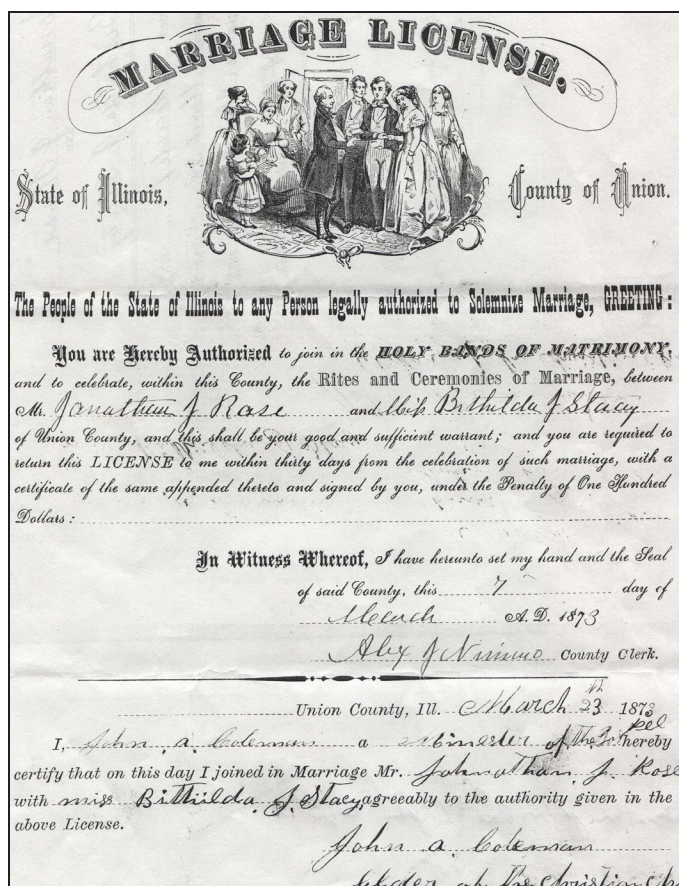 MARRIAGE LICENSE.
State of Illinois, County of Union.
The People of the State of Illinois to any Person legally authorized to Solemnize Marriage, GREETING:
You are Hereby Authorized to join in the HOLY BANDS OF MATRIMONY,
and to celebrate, within this County, the Rites and Ceremonies of Marriage, between
Mr. Jonathan J Rose and Miss Bithilda J Stacy
of Union County, and this shall be your good and sufficient warrant; and you are required to
return this LICENSE to me within thirty days from the celebration of such marriage, with a
certificate of the same appended thereto and signed by you, under the Penalty of One Hundred
Dollars:
In Witness Whereof, I have hereunto set my hand and the Seal
of said County, this 7 day of
March A.D. 1873
Alex J Nimmo County Clerk.
Union County, Ill. March 23 1873
I, John A. Coleman a Minester of The Gospel hereby
certify that on this day I joined in Marriage Mr. Johnathan J. Rose
with miss Bithilda J. Stacy agreeably to the authority given in the
above License.
John A. Coleman
Elder of the Christian Ch